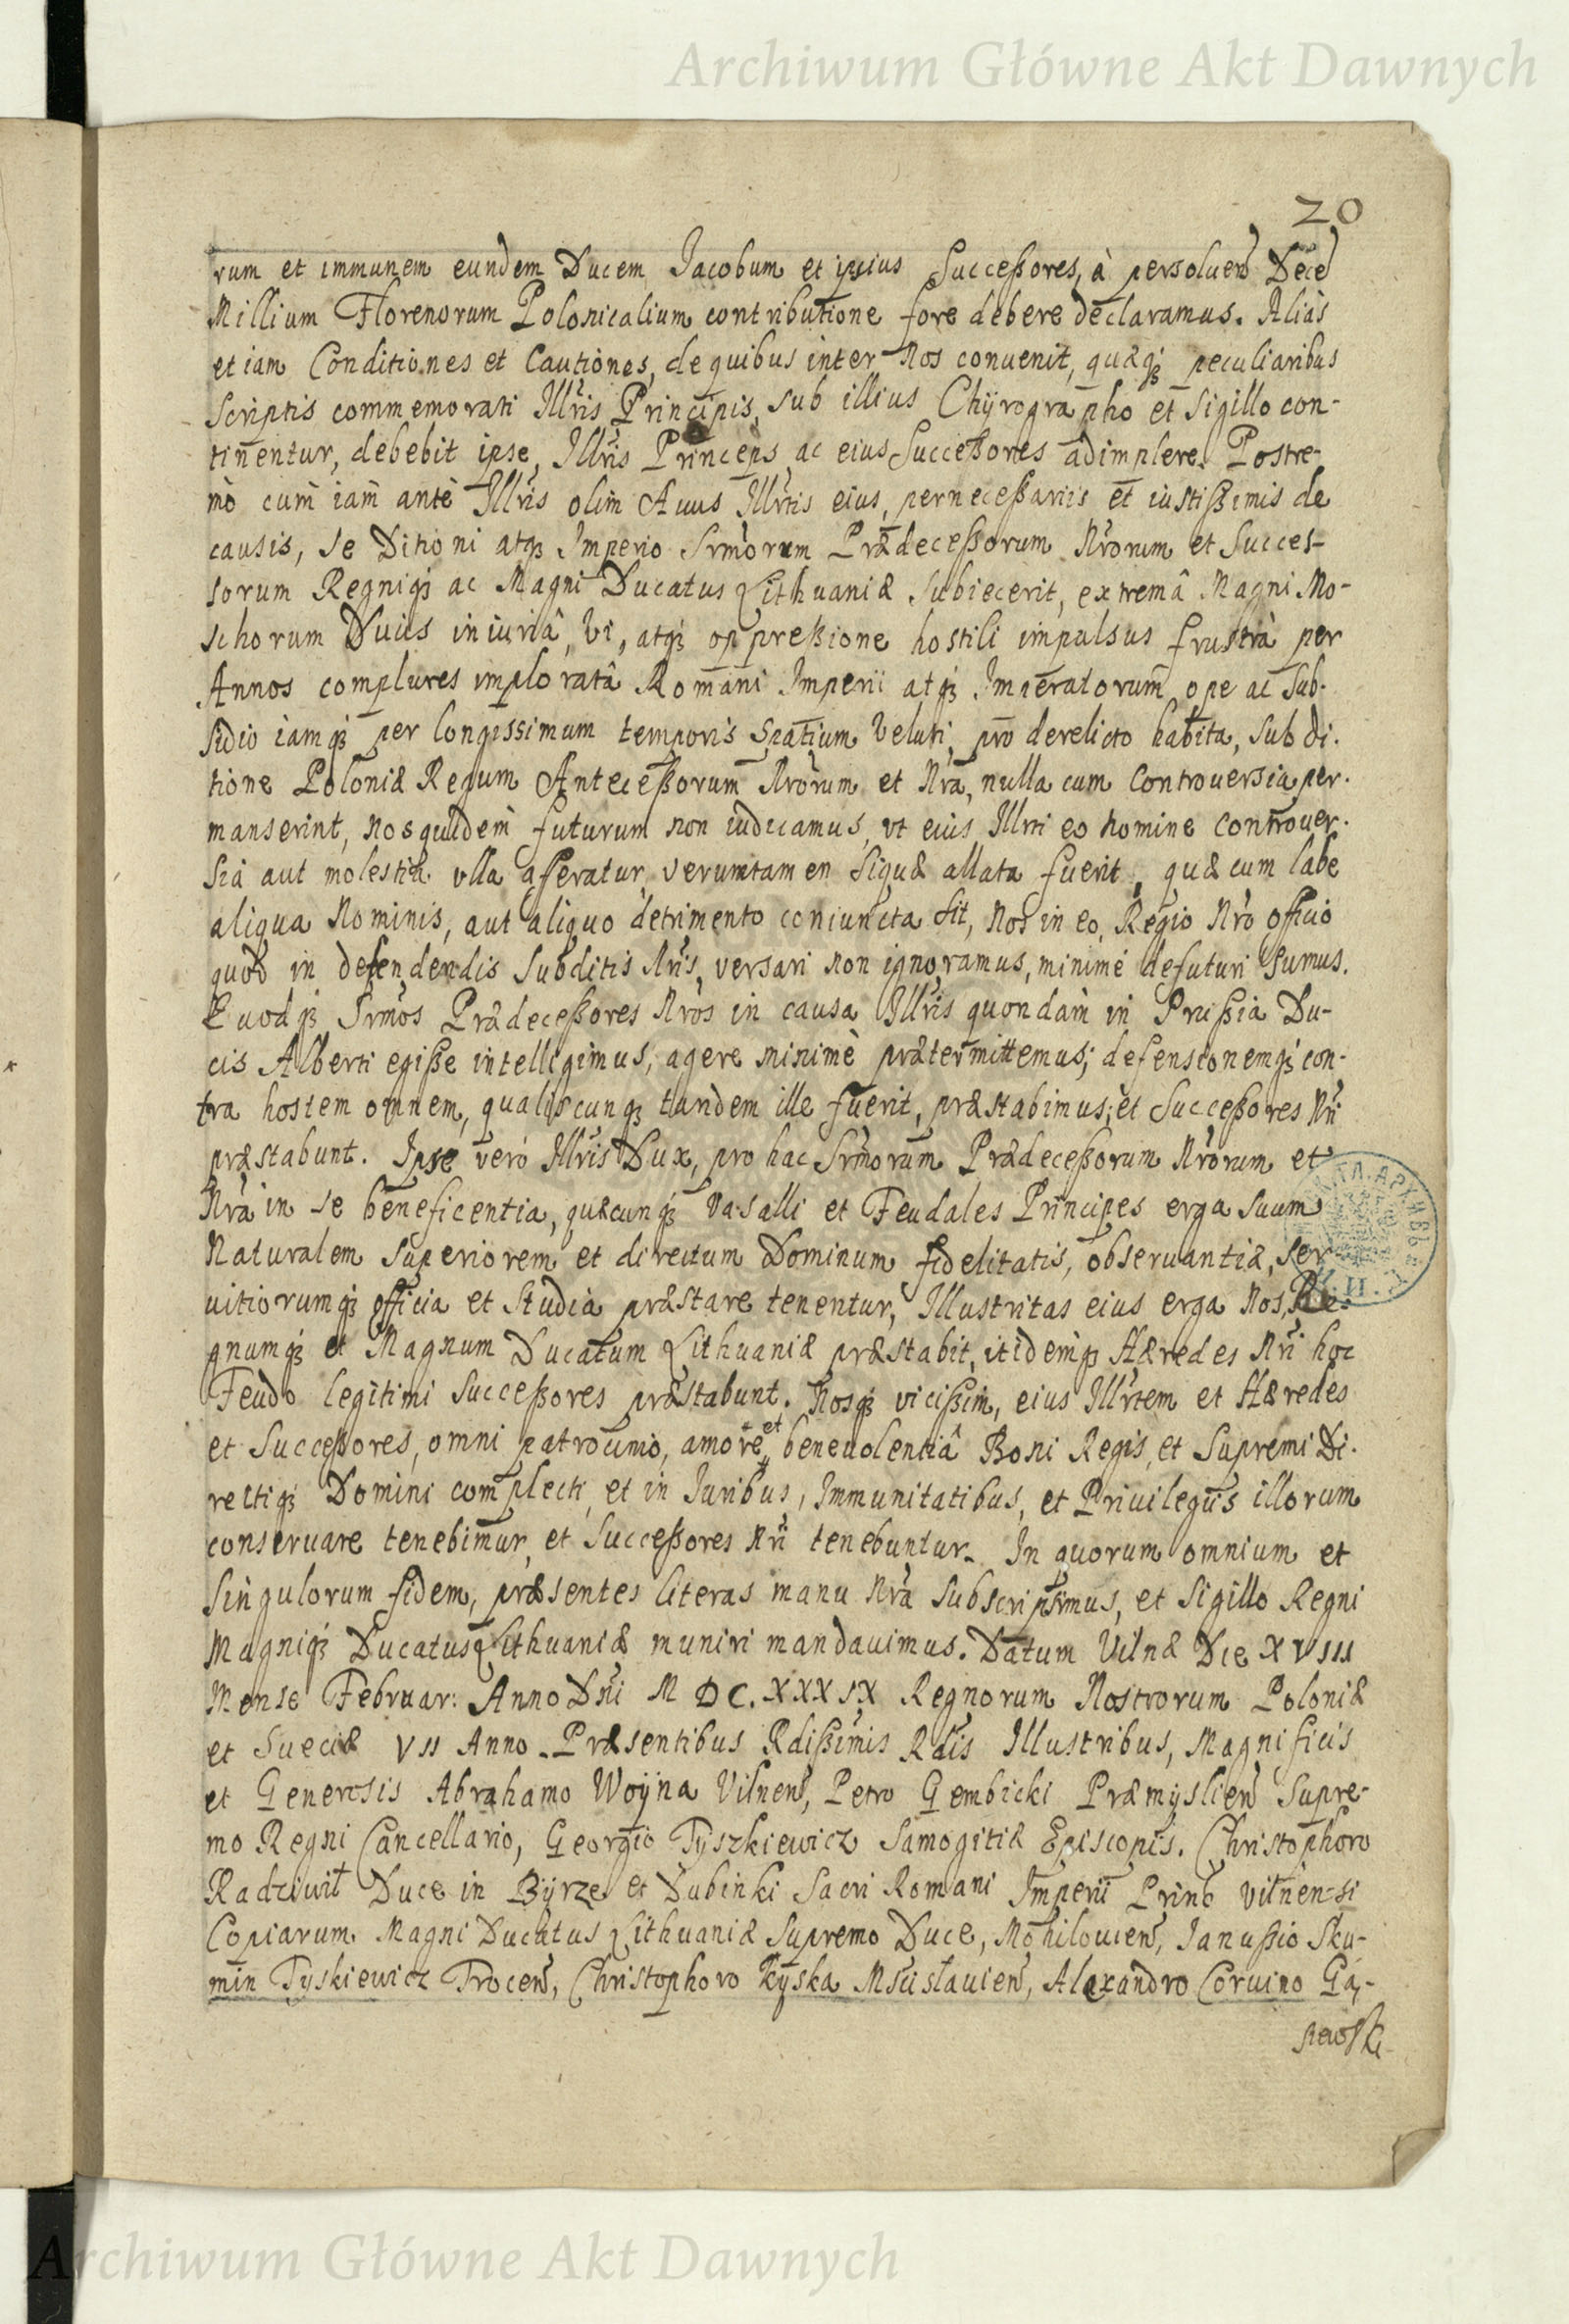 Archiwum Główne Akt Dawnych
20
rum et immunem eundem Ducem Jacobum et ipsius Successores, à persoluen̄ Decē
Millium Florenorum Polonicalium contributione fore debere declaramus. Aliàs
etiam Conditiones et Cautiones, de quibus inter Nos conuenit, quæq₃ peculiaribus
scriptis commemorati Illr̄is Principis, sub illius Chyrographo et Sigillo con-
tinentur, debebit ipse, Illr̄is Princeps, ac eius Successores adimplere. Postre-
mò cum iam antè Illr̄is olim Auus Illr̄tis eius, pernecessariis et iustissimis de
causis, se Ditioni atq₃ Imperio Srm̄orum Prædecessorum Nr̄orum et Succes-
sorum Regniq₃ ac Magni Ducatus Lithuaniæ Subiecerit, extremâ Magni Mo-
schorum Ducis iniuriâ, Vi, atq₃ oppressione hostili impulsus frustrà per
Annos complures imploratâ Romani Imperii atq₃ Imperatorum ope ac Sub-
sidio iamq₃ per longissimum temporis Spatium Veluti pro derelicto habita, sub di-
tione Poloniæ Regum Antecessorum Nr̄orum et Nr̄a, nulla cum Controuersia per-
manserint, Nos quidem futurum non iudicamus, vt eius Illr̄ti eo nomine Controuer-
sia aut molestia vlla afferatur, verumtamen siquæ allata fuerit, quæ cum labe
aliqua Nominis, aut aliquo detrimento coniuncta sit, Nos in eo, Regio Nr̄o officio
quod in defendendis Subditis Nr̄is, versari non ignoramus, minimè defuturi Sumus.
Quodq₃ Srm̄os Prædecessores Nr̄os in causa Illr̄is quondam in Prussia Du-
cis Alberti egisse intelligimus, agere minimè prætermittemus; defensionemq₃ con-
tra hostem omnem, qualiscunq₃ tandem ille fuerit, præstabimus, et Successores Nr̄i
præstabunt. Ipse verò Illr̄is Dux, pro hac Srm̄orum Prædecessorum Nr̄orum et
Nr̄a in se beneficentia, quæcunq₃ Vasalli et Feudales Principes erga suum
Naturalem Superiorem et directum Dominum fidelitatis, obseruantiæ, ser-
uitiorumq₃ officia et Studia præstare tenentur, Illustritas eius erga Nos, Re-
gnumq₃ et Magnum Ducatum Lithuaniæ præstabit, itidemq₃ Hæredes Nr̄i hoc
Feudo legitimi Successores præstabunt. Nosq₃ vicissim, eius Illr̄tem et Hæredes
et Successores, omni patrocinio, amore et beneuolentiâ Boni Regis, et Supremi Di-
rectiq₃ Domini complecti, et in Juribus, Immunitatibus, et Priuilegiis illorum
conseruare tenebimur, et Successores Nr̄i tenebuntur. In quorum omnium et
Singulorum fidem, præsentes literas manu Nr̄a Subscripsimus, et Sigillo Regni
Magniq₃ Ducatus Lithuaniæ muniri mandauimus. Datum Vilnæ Die XVIII
Mense Februar: Anno Dn̄i M DC. XXXIX Regnorum Nostrorum Poloniæ
et Sueciæ VII Anno. Præsentibus Rdissimis Rdis Illustribus, Magnificis
et Generosis Abrahamo Woyna Vilnen̄, Petro Gembicki Præmyslien̄ Supre-
mo Regni Cancellario, Georgio Tyszkiewicz Samogitiæ Episcopis. Christophoro
Radziwił Duce in Byrze et Dubinki Sacri Romani Imperii Princ Vilnen-si
Copiarum Magni Ducatus Lithuaniæ Supremo Duce, Mohilouien̄, Janussio Sku-
min Tyskiewicz Trocen̄, Christophoro Kyska Mscislauien̄, Alexandro Coruino Gą-
siewski
Archiwum Główne Akt Dawnych